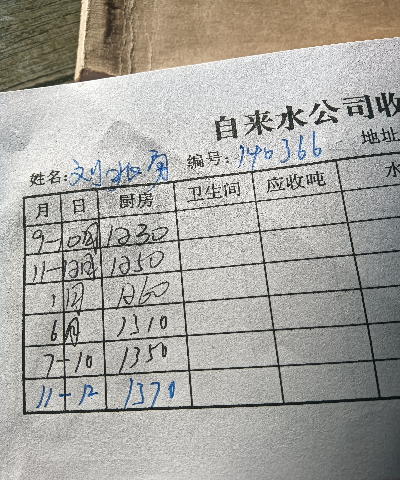 自来水公司收
姓名: 刘 编号: 140366 地址
月 日 厨房 卫生间 应收吨 水
9-10月 1230
11-12月 1250
1月 1260
6月 1310
7-10 1350
11-12 1370